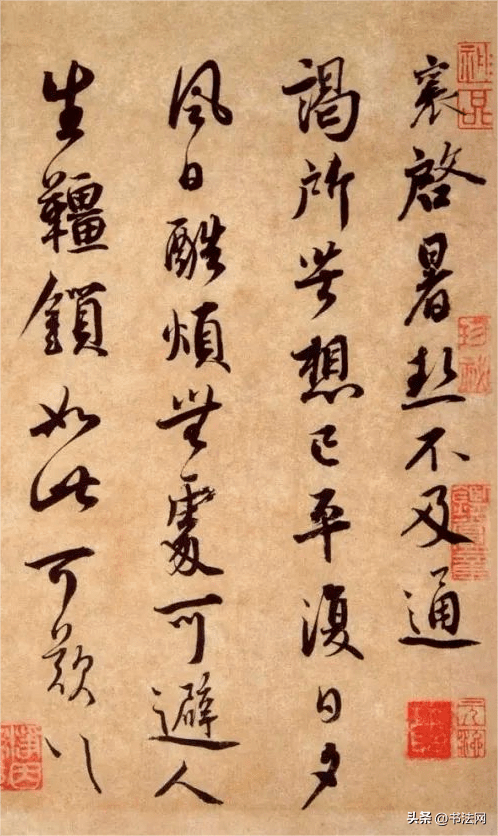 襄啓暑熱不及通
謁所苦想已平復日夕
風日酷煩無處可避人
生韁鎖如此可歎〻
神品
头条 @书法网